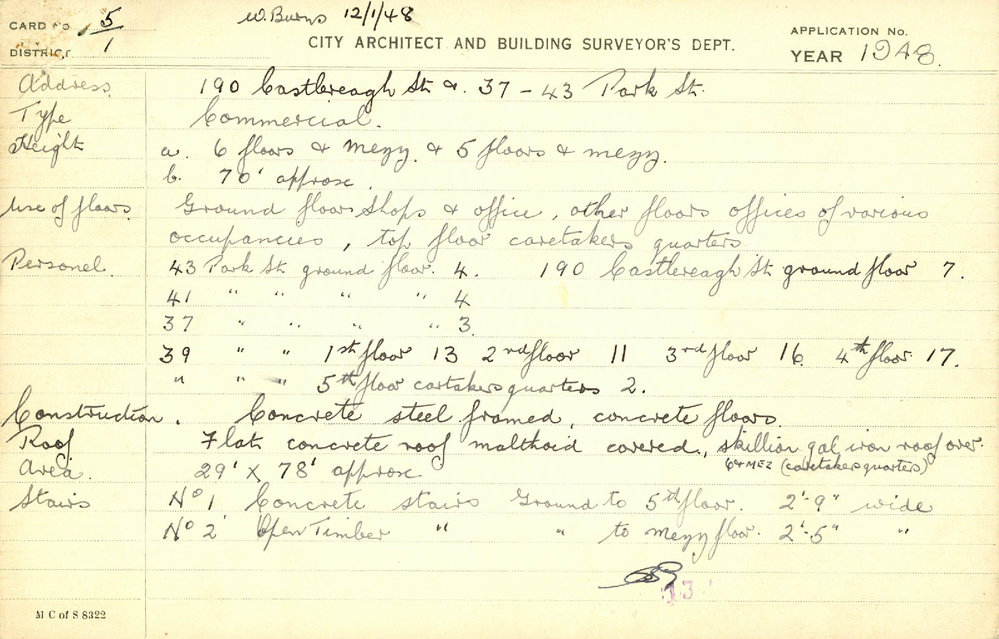 CARD No 5/1 W. Burns 12/1/48 APPLICATION No.
DISTRICT CITY ARCHITECT AND BUILDING SURVEYOR'S DEPT. YEAR 1948.
Address 190 Castlereagh St & 37 - 43 Park St.
Type Commercial.
Height a. 6 floors & mezz. & 5 floors & mezz.
b. 70' approx.
Use of floors. Ground floor shops & office, other floors offices of various
occupancies, top floor caretakers quarters
Personel. 43 Park St. ground floor. 4. 190 Castlereagh St. ground floor 7.
41 " " " " 4
37 " " " " 3.
39 " " 1st floor 13 2nd floor 11 3rd floor 16. 4th floor 17.
" " " 5th floor cartakers quarters 2.
Construction. Concrete steel framed, concrete floors.
Roof Flat concrete roof malthoid covered, skillion gal iron roof over
(caretakers quarters)
Area. 29' x 78' approx
Stairs No 1. Concrete stairs Ground to 5th floor. 2'-9" wide
No 2 Open Timber " " to mezz floor. 2'-5" "
13
M C of S 8322